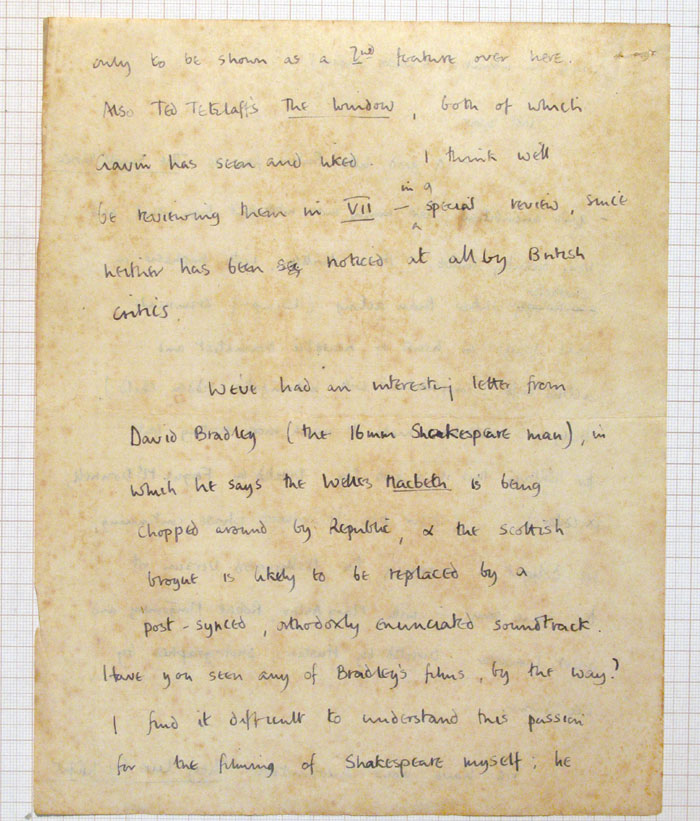 only to be shown as a 2nd feature over here.
Also Ted Tetzlaff's The Window, both of which
Gavin has seen and liked. I think we'll
be reviewing them in VII — in a special review, since
neither has been noticed at all by British
critics.
We've had an interesting letter from
David Bradley (the 16mm Shakespeare man), in
which he says the Welles Macbeth is being
chopped around by Republic, & the scottish
brogue is likely to be replaced by a
post-synced, orthodoxly enunciated soundtrack.
Have you seen any of Bradley's films, by the way?
I find it difficult to understand this passion
for the filming of Shakespeare myself; he